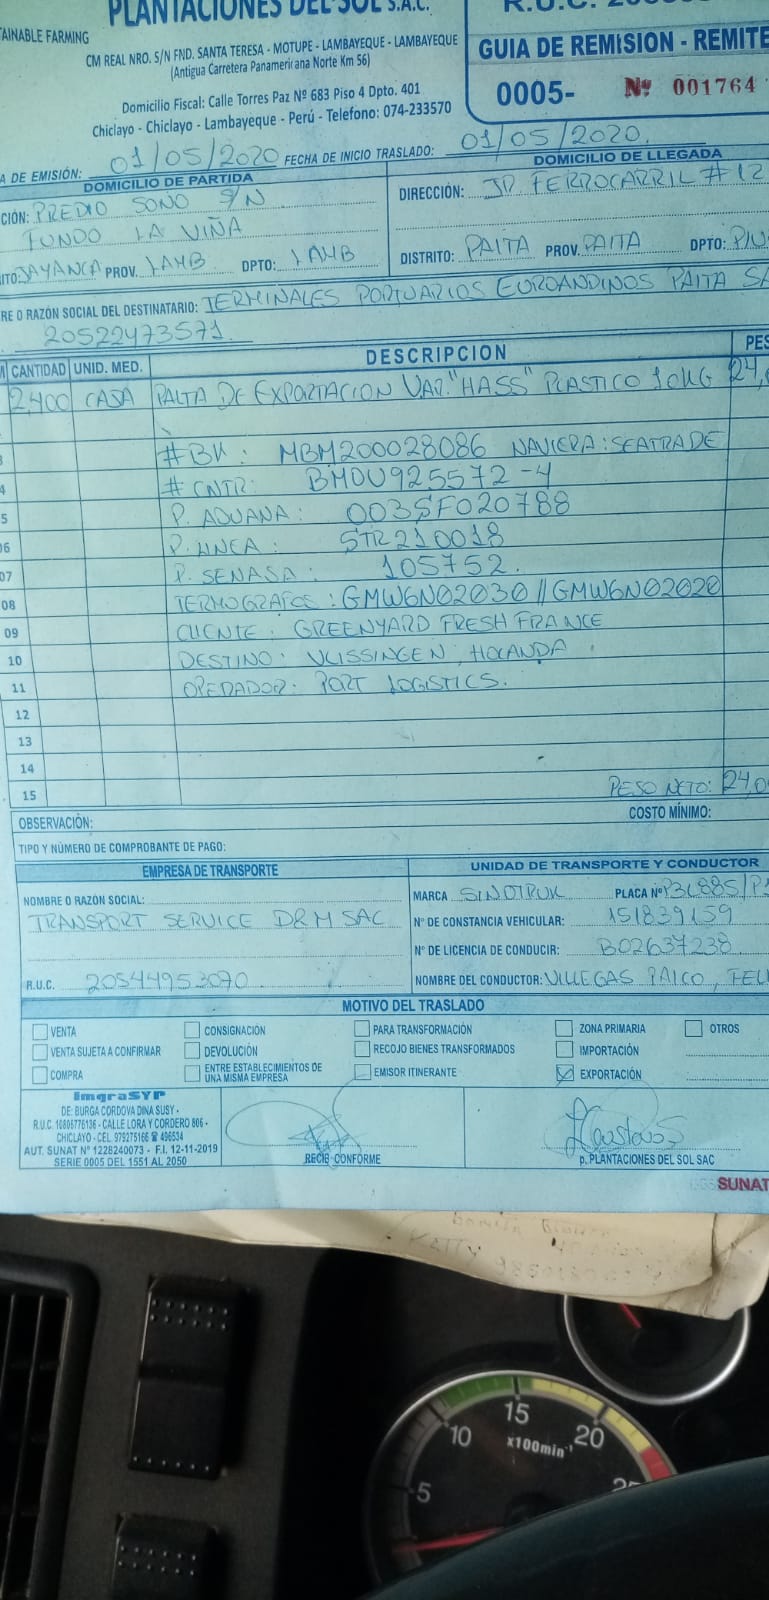 PLANTACIONES DEL SOL S.A.C.
AINABLE FARMING
CM REAL NRO. S/N FND. SANTA TERESA - MOTUPE - LAMBAYEQUE - LAMBAYEQUE
(Antigua Carretera Panamericana Norte Km 56)
Domicilio Fiscal: Calle Torres Paz Nº 683 Piso 4 Dpto. 401
Chiclayo - Chiclayo - Lambayeque - Perú - Teléfono: 074-233570
R.U.C.
GUIA DE REMISION - REMITE
0005- Nº 001764
A DE EMISIÓN: 01/05/2020 FECHA DE INICIO TRASLADO: 01/05/2020.
DOMICILIO DE PARTIDA
CIÓN: PREDIO SONO S/N
FUNDO LA VIÑA
ITO: JAYANCA PROV. LAMB DPTO: LAMB
DOMICILIO DE LLEGADA
DIRECCIÓN: JR. FERROCARRIL # 12
DISTRITO: PAITA PROV. PAITA DPTO: PIU
RE O RAZÓN SOCIAL DEL DESTINATARIO: TERMINALES PORTUARIOS EUROANDINOS PAITA SA
20522473571.
CANTIDAD UNID. MED. DESCRIPCION PES
2,400 CAJA PALTA DE EXPORTACION VAR. "HASS" PLASTICO 10KG 24,
# BK: MBM200028086 NAVIERA: SEATRADE
4 # CNTR: BMOU925572-4
5 P. ADUANA: 003SF020788
06 P. LINEA: STR210018
07 P. SENASA: 105752.
08 TERMOGRAFOS: GMW6N02030 // GMW6N02020
09 CLIENTE: GREENYARD FRESH FRANCE
10 DESTINO: VLISSINGEN, HOLANDA
11 OPERADOR: PORT LOGISTICS.
12
13
14
15 PESO NETO: 24,0
OBSERVACIÓN: COSTO MÍNIMO:
TIPO Y NÚMERO DE COMPROBANTE DE PAGO:
EMPRESA DE TRANSPORTE
NOMBRE O RAZÓN SOCIAL:
TRANSPORT SERVICE DRM SAC
R.U.C. 20544953070
UNIDAD DE TRANSPORTE Y CONDUCTOR
MARCA SINOTRUK PLACA Nº P3L885/P
Nº DE CONSTANCIA VEHICULAR: 151839159
Nº DE LICENCIA DE CONDUCIR: B02637238
NOMBRE DEL CONDUCTOR: VILLEGAS PAICO, FEL
MOTIVO DEL TRASLADO
VENTA CONSIGNACIÓN PARA TRANSFORMACIÓN ZONA PRIMARIA OTROS
VENTA SUJETA A CONFIRMAR DEVOLUCIÓN RECOJO BIENES TRANSFORMADOS IMPORTACIÓN
COMPRA ENTRE ESTABLECIMIENTOS DE UNA MISMA EMPRESA EMISOR ITINERANTE EXPORTACIÓN
ImgraSYP
DE: BURGA CORDOVA DINA SUSY -
R.U.C. 10805776136 - CALLE LORA Y CORDERO 806 -
CHICLAYO - CEL. 979275166 ☎ 496534
AUT. SUNAT Nº 1228240073 - F.I. 12-11-2019
SERIE 0005 DEL 1551 AL 2050
RECIBI CONFORME
p. PLANTACIONES DEL SOL SAC
SUNAT
KATTY
5
10
15
20
x100min⁻¹